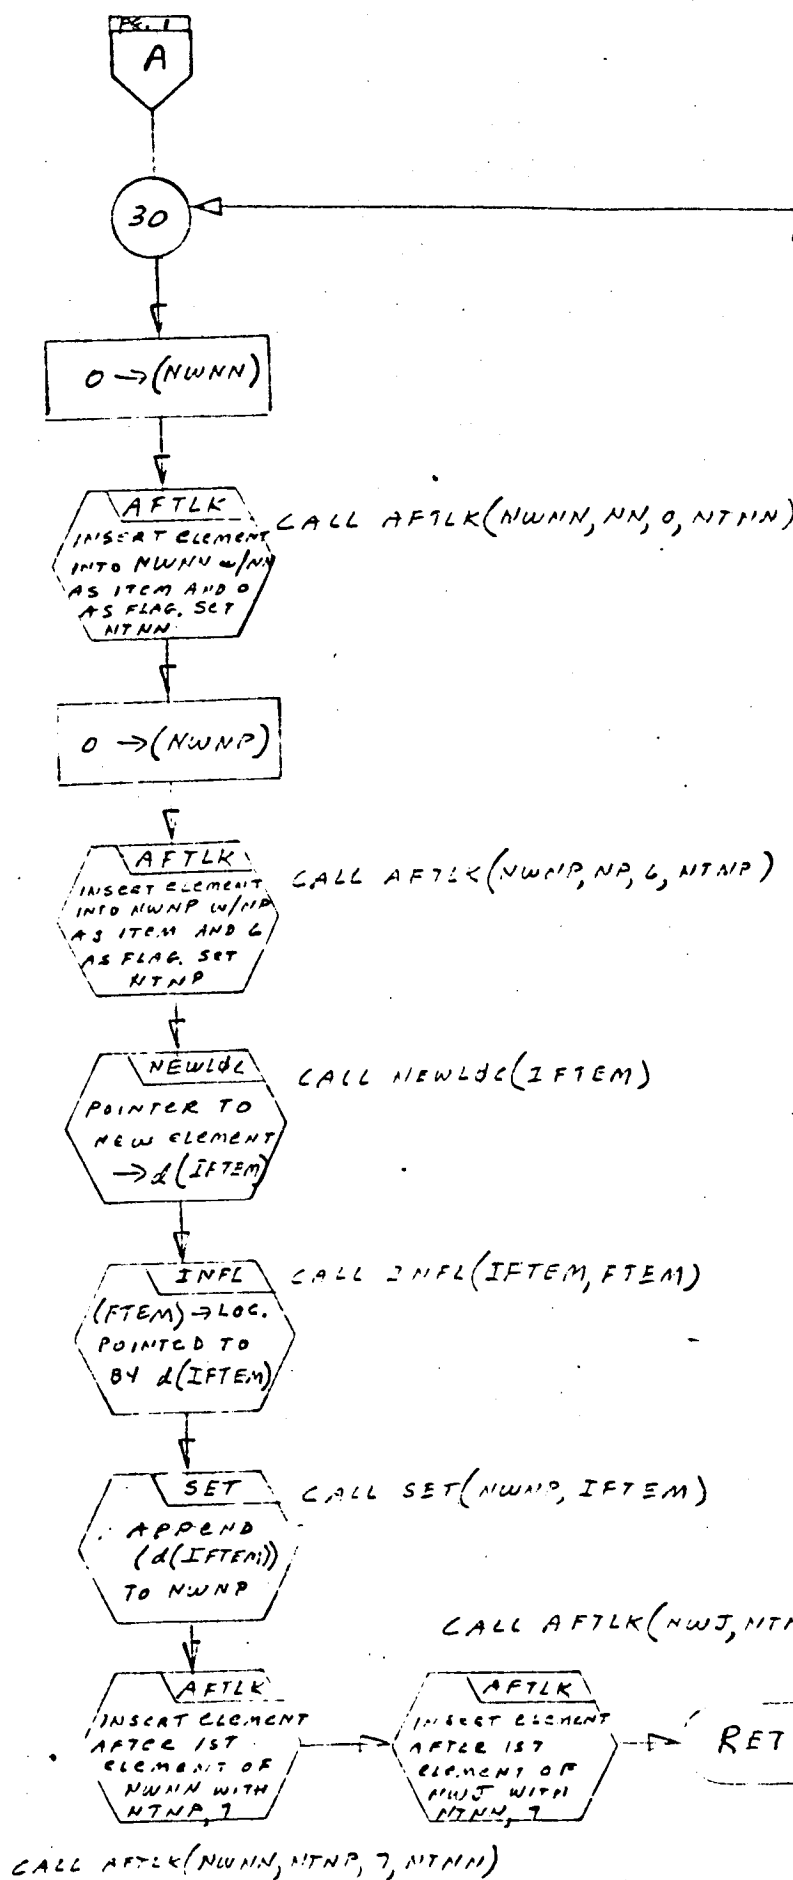 PG. 1
A
30
0 → (NWNN)
AFTLK
INSERT ELEMENT
INTO NWNN W/NN
AS ITEM AND 0
AS FLAG. SET
NTNN
CALL AFTLK(NWNN, NN, 0, NTNN)
0 → (NWNP)
AFTLK
INSERT ELEMENT
INTO NWNP W/NP
AS ITEM AND 6
AS FLAG. SET
NTNP
CALL AFTLK(NWNP, NP, 6, NTNP)
NEWLØC
POINTER TO
NEW ELEMENT
→ d(IFTEM)
CALL NEWLØC(IFTEM)
INFL
(FTEM) → LOC.
POINTED TO
BY d(IFTEM)
CALL INFL(IFTEM, FTEM)
SET
APPEND
(d(IFTEM))
TO NWNP
CALL SET(NWNP, IFTEM)
CALL AFTLK(NWJ,
AFTLK
INSERT ELEMENT
AFTER 1ST
ELEMENT OF
NWNN WITH
NTNP, 7
AFTLK
INSERT ELEMENT
AFTER 1ST
ELEMENT OF
NWJ WITH
NTNN, 7
RET
CALL AFTLK(NWNN, NTNP, 7, NTNN)